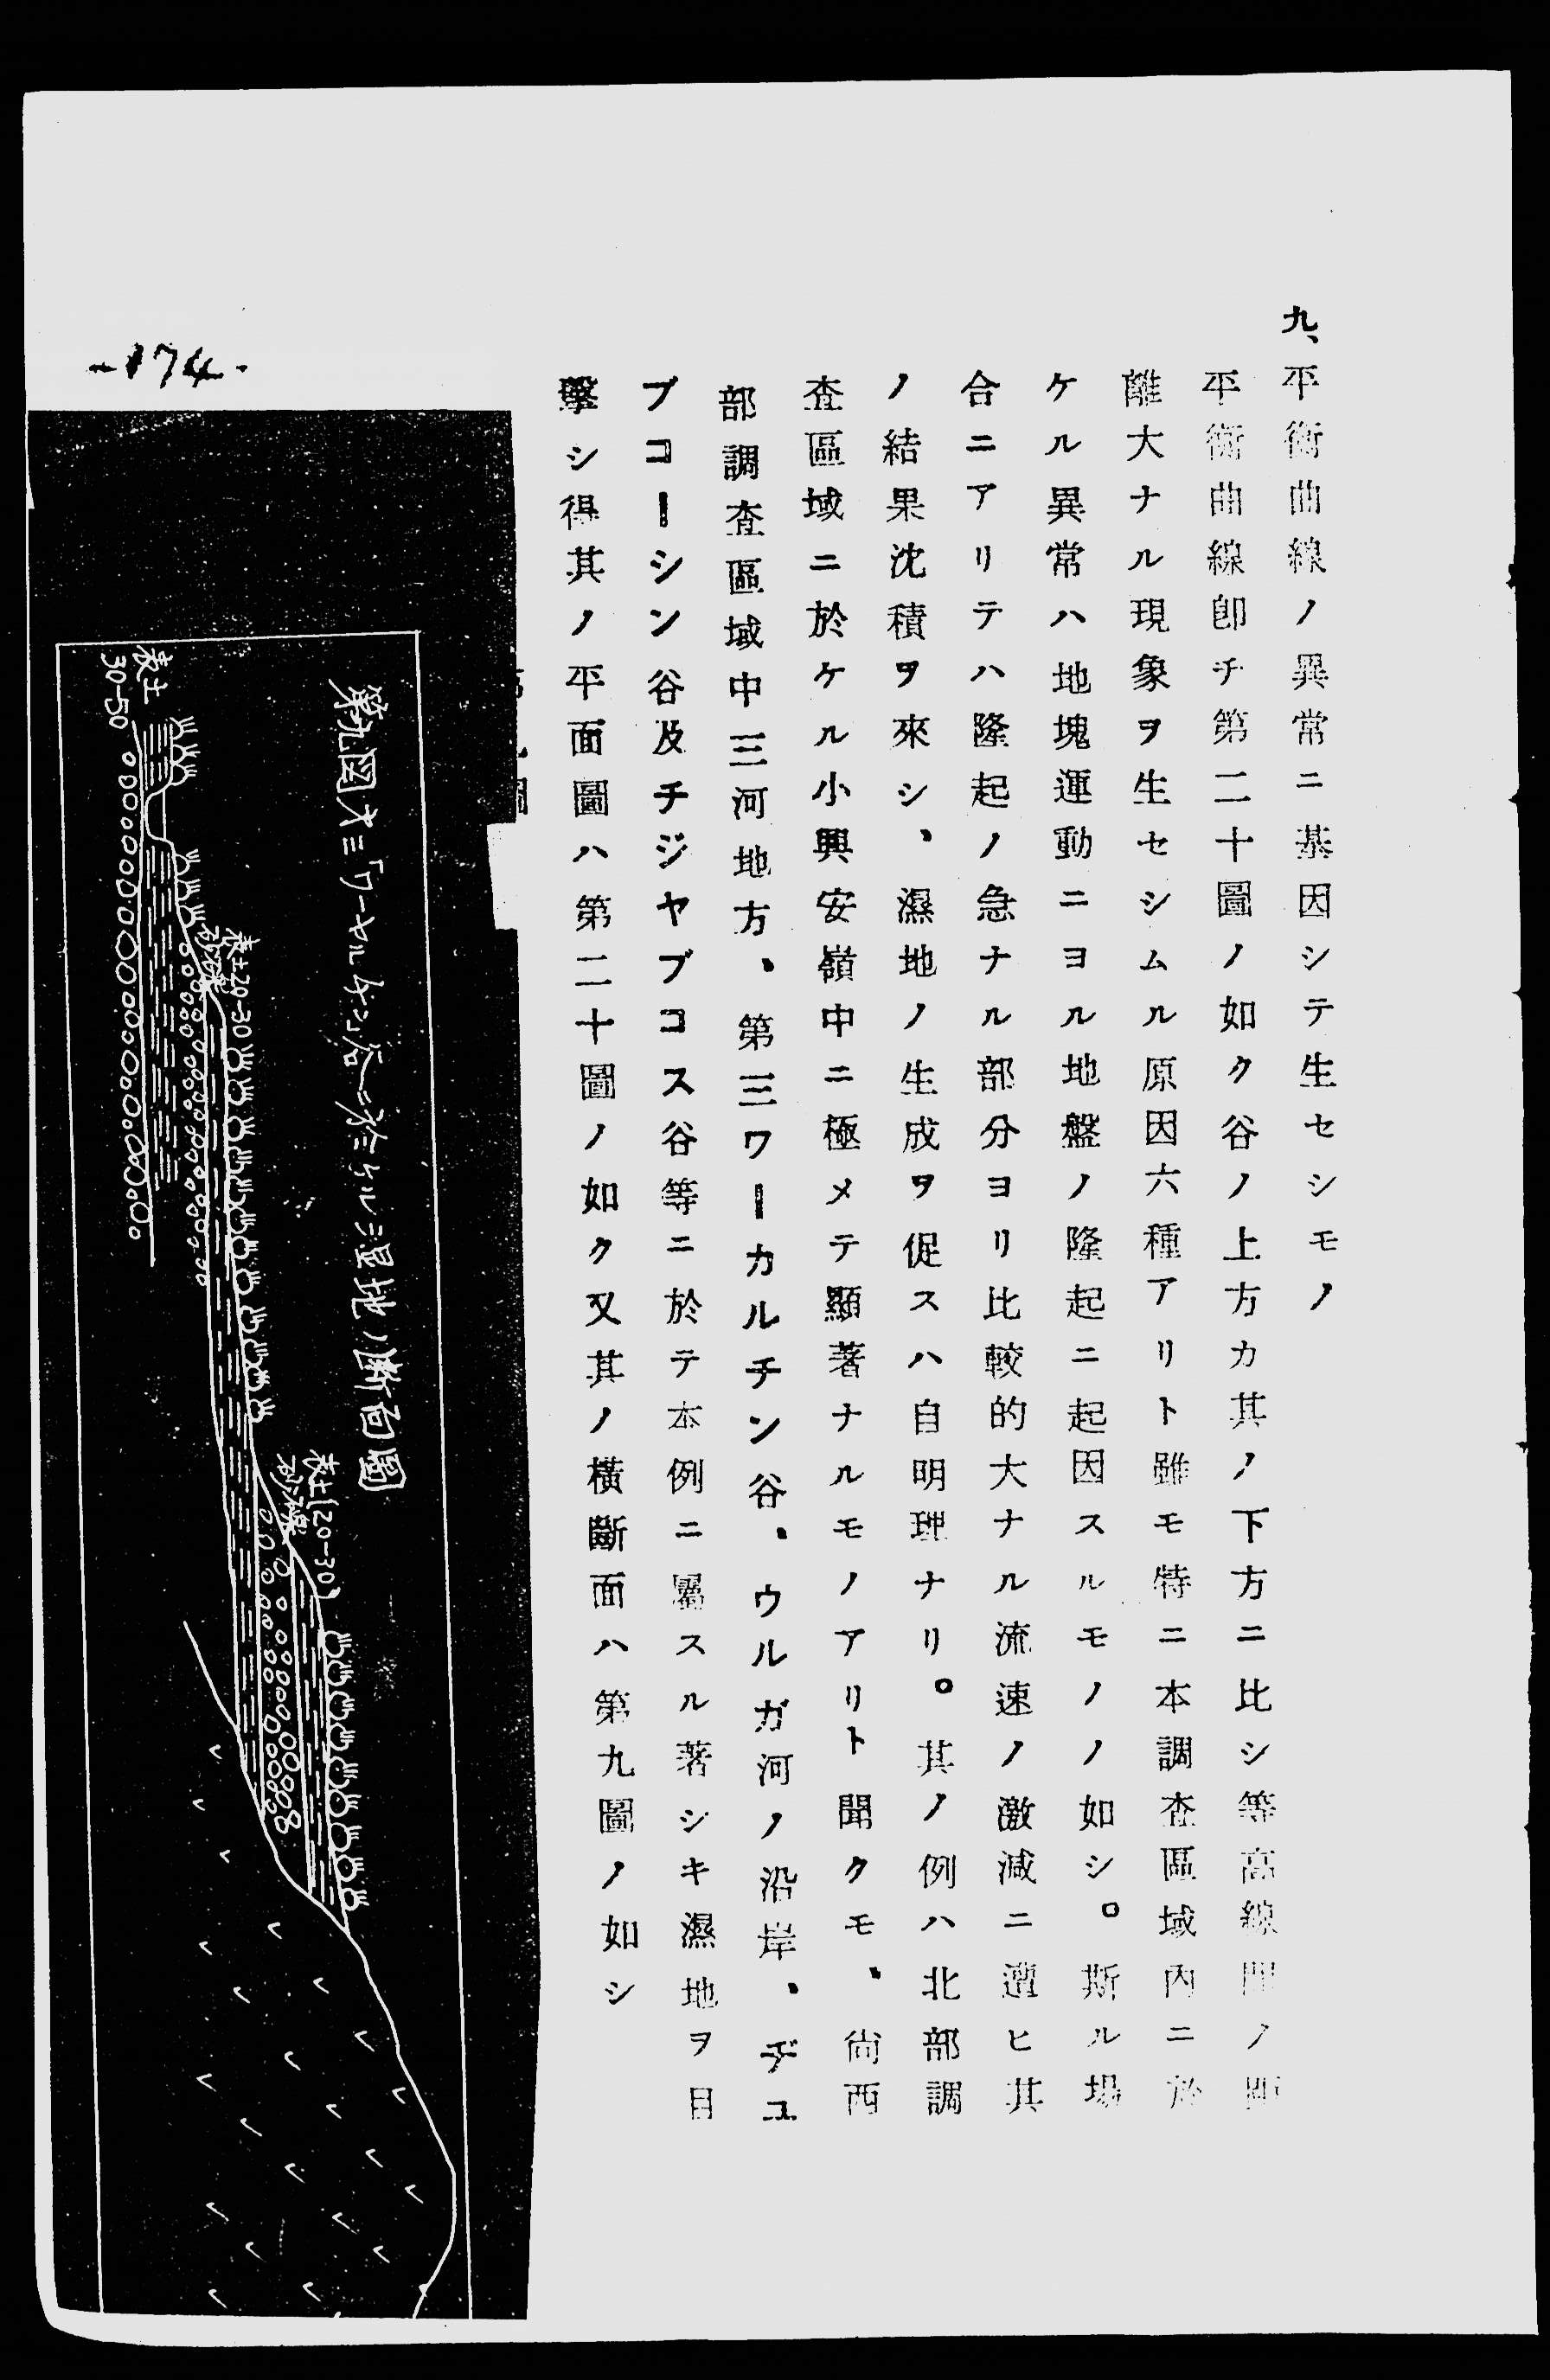 九、平衡曲線ノ異常ニ基因シテ生セシモノ
平衡曲線卽チ第二十圖ノ如ク谷ノ上方カ其ノ下方ニ比シ等高線間ノ距
離大ナル現象ヲ生セシムル原因六種アリト雖モ特ニ本調査區域內ニ於
ケル異常ハ地塊運動ニヨル地盤ノ隆起ニ起因スルモノノ如シ。斯ル場
合ニアリテハ隆起ノ急ナル部分ヨリ比較的大ナル流速ノ激減ニ遭ヒ其
ノ結果沈積ヲ來シ、濕地ノ生成ヲ促スハ自明理ナリ。其ノ例ハ北部調
査區域ニ於ケル小興安嶺中ニ極メテ顯著ナルモノアリト聞クモ、尙西
部調査區域中三河地方、第三ワーカルチン谷、ウルガ河ノ沿岸、ヂユ
ブコーシン谷及チジヤブコス谷等ニ於テ本例ニ屬スル著シキ濕地ヲ目
擊シ得其ノ平面圖ハ第二十圖ノ如ク又其ノ橫斷面ハ第九圖ノ如シ
第九図 谷ニ於ケル湿地ノ断面圖
表土(20-30)
砂礫
表土20-30
砂礫
表土
30-50
-174-